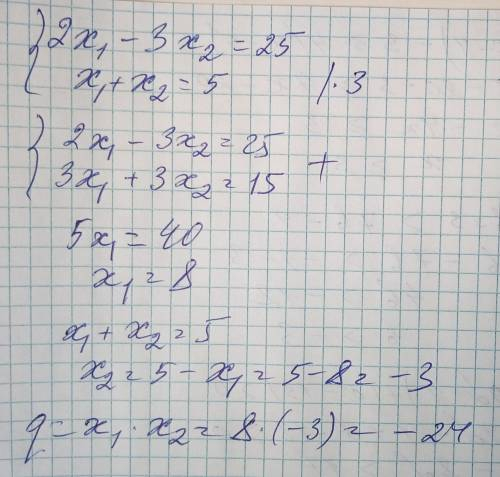 2x₁ - 3x₂ = 25
x₁ + x₂ = 5 /·3
2x₁ - 3x₂ = 25
3x₁ + 3x₂ = 15 +
5x₁ = 40
x₁ = 8
x₁ + x₂ = 5
x₂ = 5 - x₁ = 5 - 8 = -3
q = x₁ · x₂ = 8 · (-3) = -24